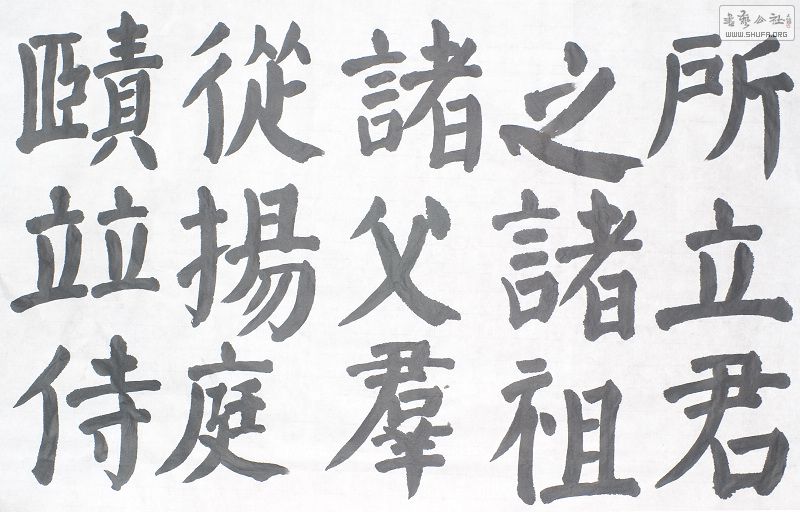 所立君
之諸祖
諸父羣
從揚庭
賾竝侍
書藝公社
WWW.SHUFA.ORG